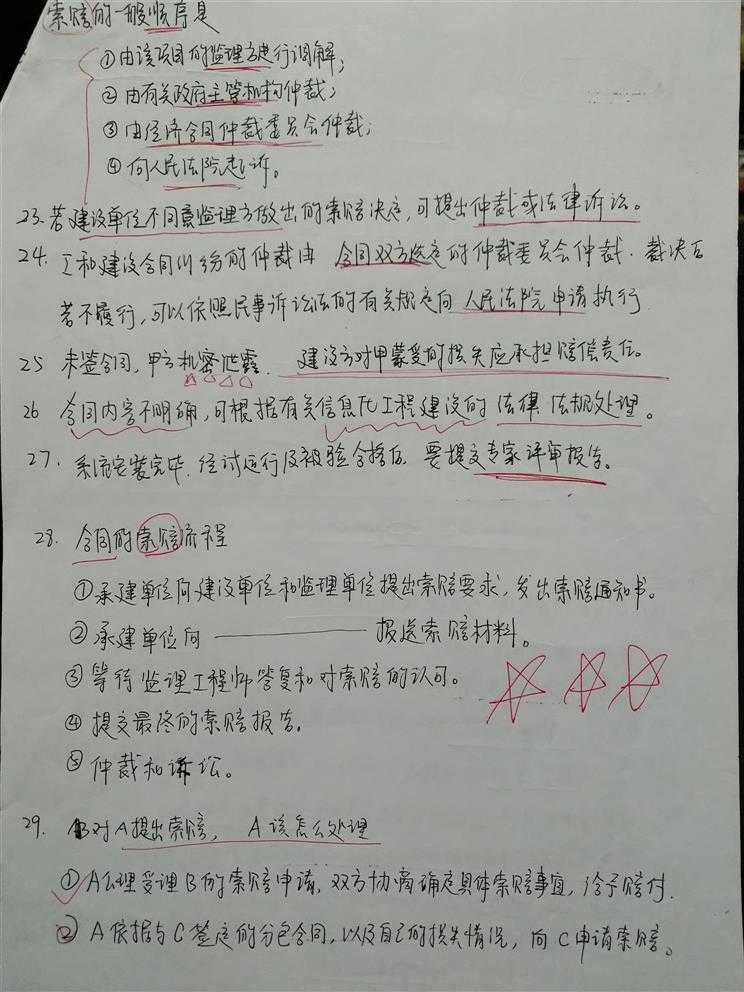 索赔的一般顺序是
①由该项目的监理方进行调解;
②由有关政府主管机构仲裁;
③由经济合同仲裁委员会仲裁;
④向人民法院起诉。
23.若建设单位不同意监理方做出的索赔决定,可提出仲裁或法律诉讼。
24.工和建设合同纠纷的仲裁由 合同双方选定的仲裁委员会仲裁.裁决后
若不履行,可以依照民事诉讼法的有关规定向人民法院申请执行
25 未签合同,甲方机密泄露. 建设方对甲蒙受的损失应承担赔偿责任。
26 合同内容不明确,可根据有关信息化工程建设的 法律 法规处理。
27. 系统安装完毕.经试运行及被验合格后 要提交专家评审报告。
28. 合同的索赔流程
①承建单位向建设单位和监理单位提出索赔要求,发出索赔通知书。
②承建单位向——报送索赔材料。
③等待监理工程师答复和对索赔的认可。
④提交最终的索赔报告.
⑤仲裁和诉讼。
29. B对A提出索赔, A该怎么处理
①A公理受理B的索赔申请,双方协商确定具体索赔事宜,给予赔付.
②A依据与C签定的分包合同,以及自己的损失情况,向C申请索赔。